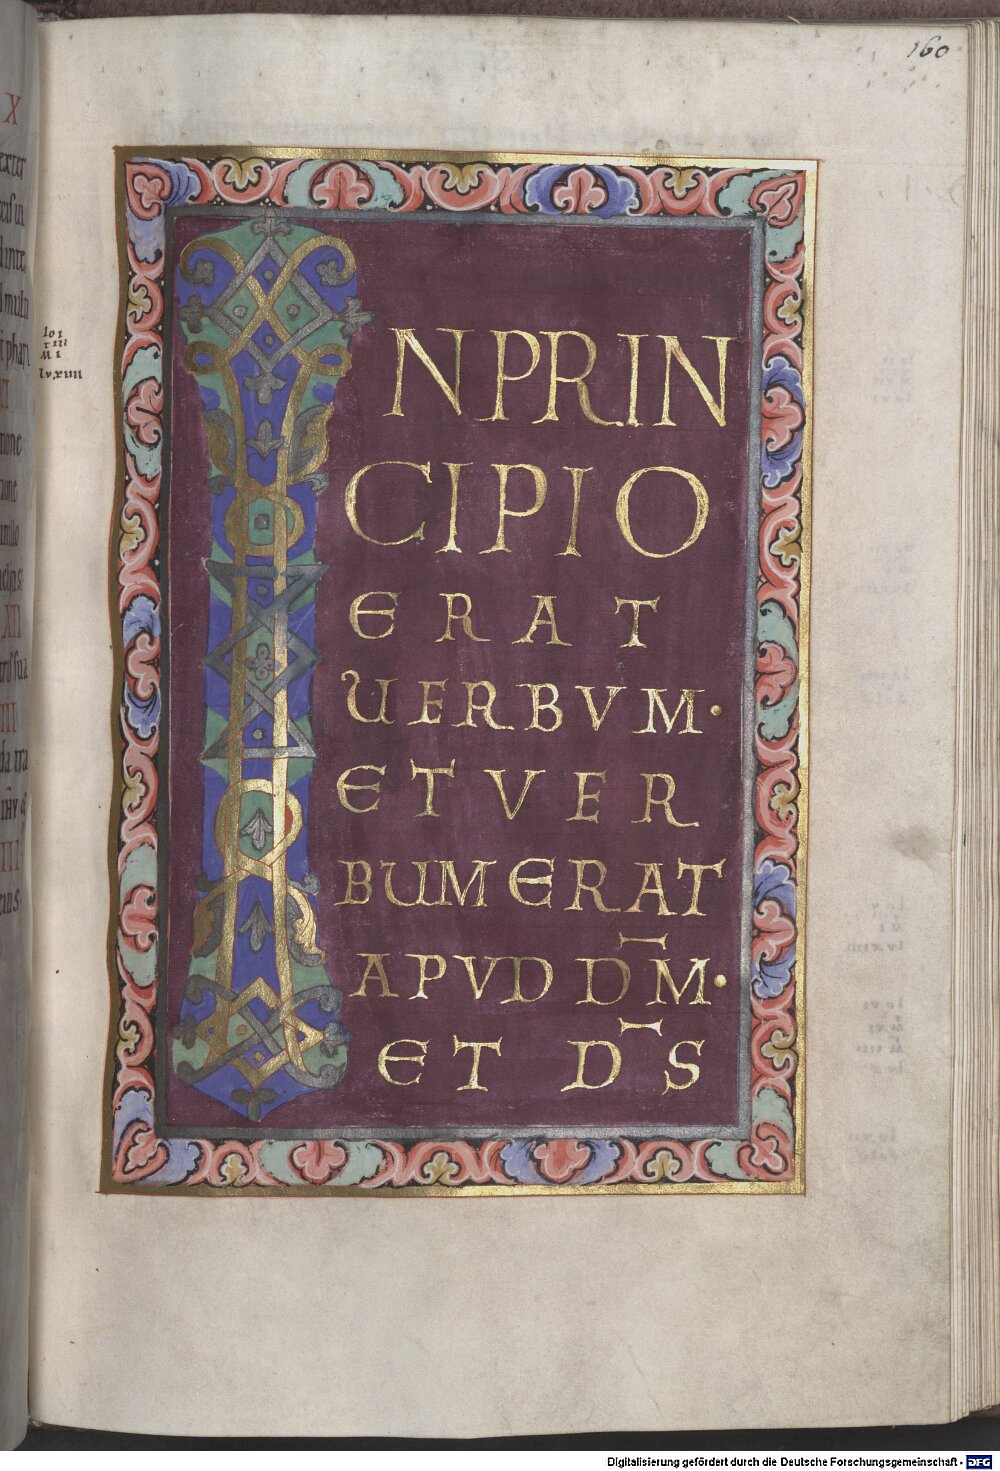 160
X
I
N PRIN
CIPIO
ERAT
UERBVM·
ET VER
BUM ERAT
APVD D̅M̅·
ET D̅S
lvxiiii
XI
XII
Digitalisierung gefördert durch die Deutsche Forschungsgemeinschaft - DFG